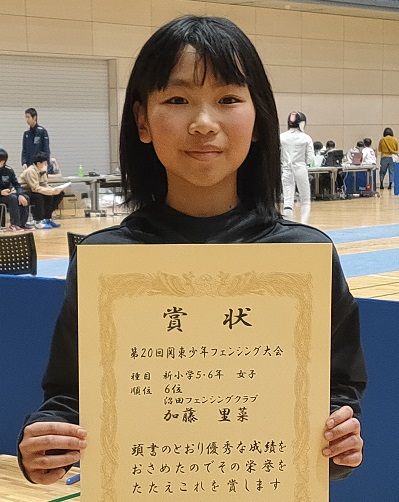 賞状
第20回関東少年フェンシング大会
種目 新小学5・6年 女子
順位 6位
沼田フェンシングクラブ
加藤 里菜
頭書のとおり優秀な成績を
おさめたのでその栄誉を
たたえこれを賞します